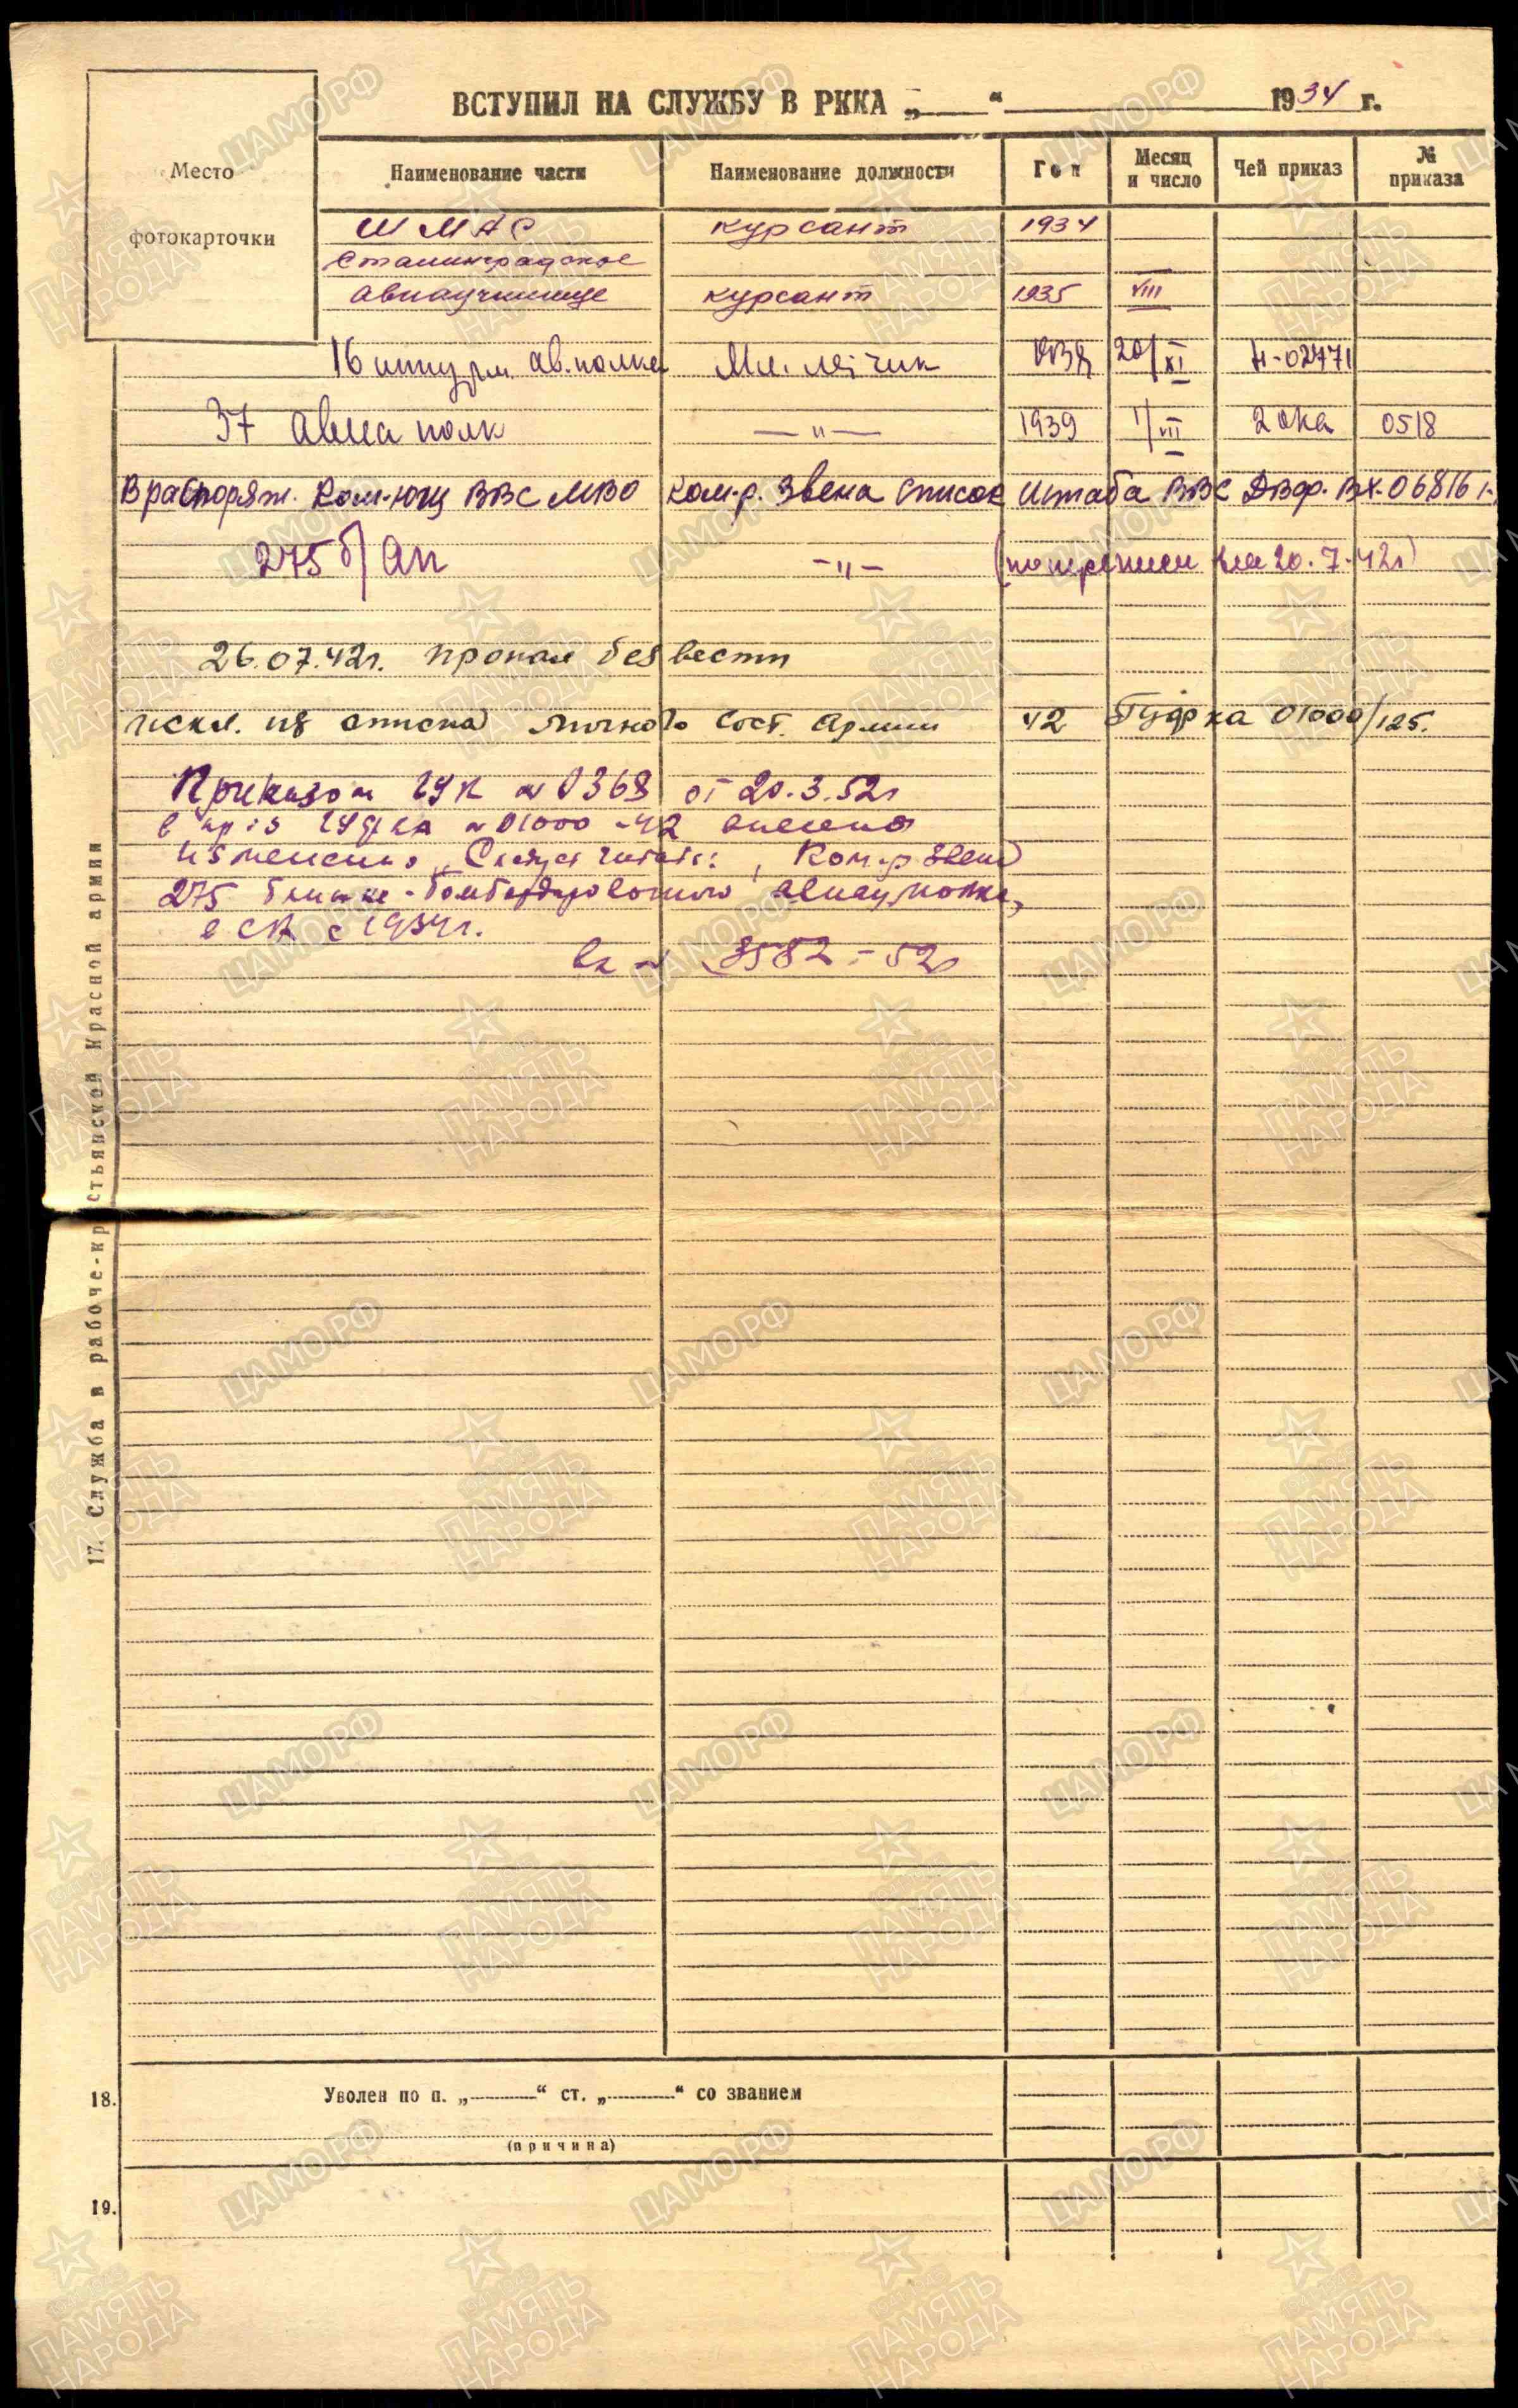 ВСТУПИЛ НА СЛУЖБУ В РККА „___“ ______ 1934 г.
Место
фотокарточки
Наименование части Наименование должности Год Месяц и число Чей приказ № приказа
ШМАС курсант 1934
Сталинградское
авиаучилище курсант 1935 VIII
16 штурм. ав. полка Мл. летчик 1938 20/XI Н-02471
37 авиа полк —"— 1939 1/VII 2 ока 0518
В распоряж. Ком-ющ ВВС МВО Ком-р. Звена Список Штаба ВВС ДВфр. Вх. 06816
275 б/ап —"— (по на 20.7.42г)
26.07.42г. пропал без вести
искл. из списка личного сост. Армии 42 Гуфка 01000/125.
Приказом ГУК № 0368 от 20.3.52г
в пр-з ГУФКА № 01000-42 внесено
изменение. Следует читать: Ком-р звена
275 ближне-бомбардировочного авиац. полка,
в СА с 1934г.
вх № 3582-52г
17. Служба в рабоче-крестьянской Красной армии
18. Уволен по п. „______“ ст. „______“ со званием
(причина)
19.
ЦАМО.РФ
ПАМЯТЬ
НАРОДА